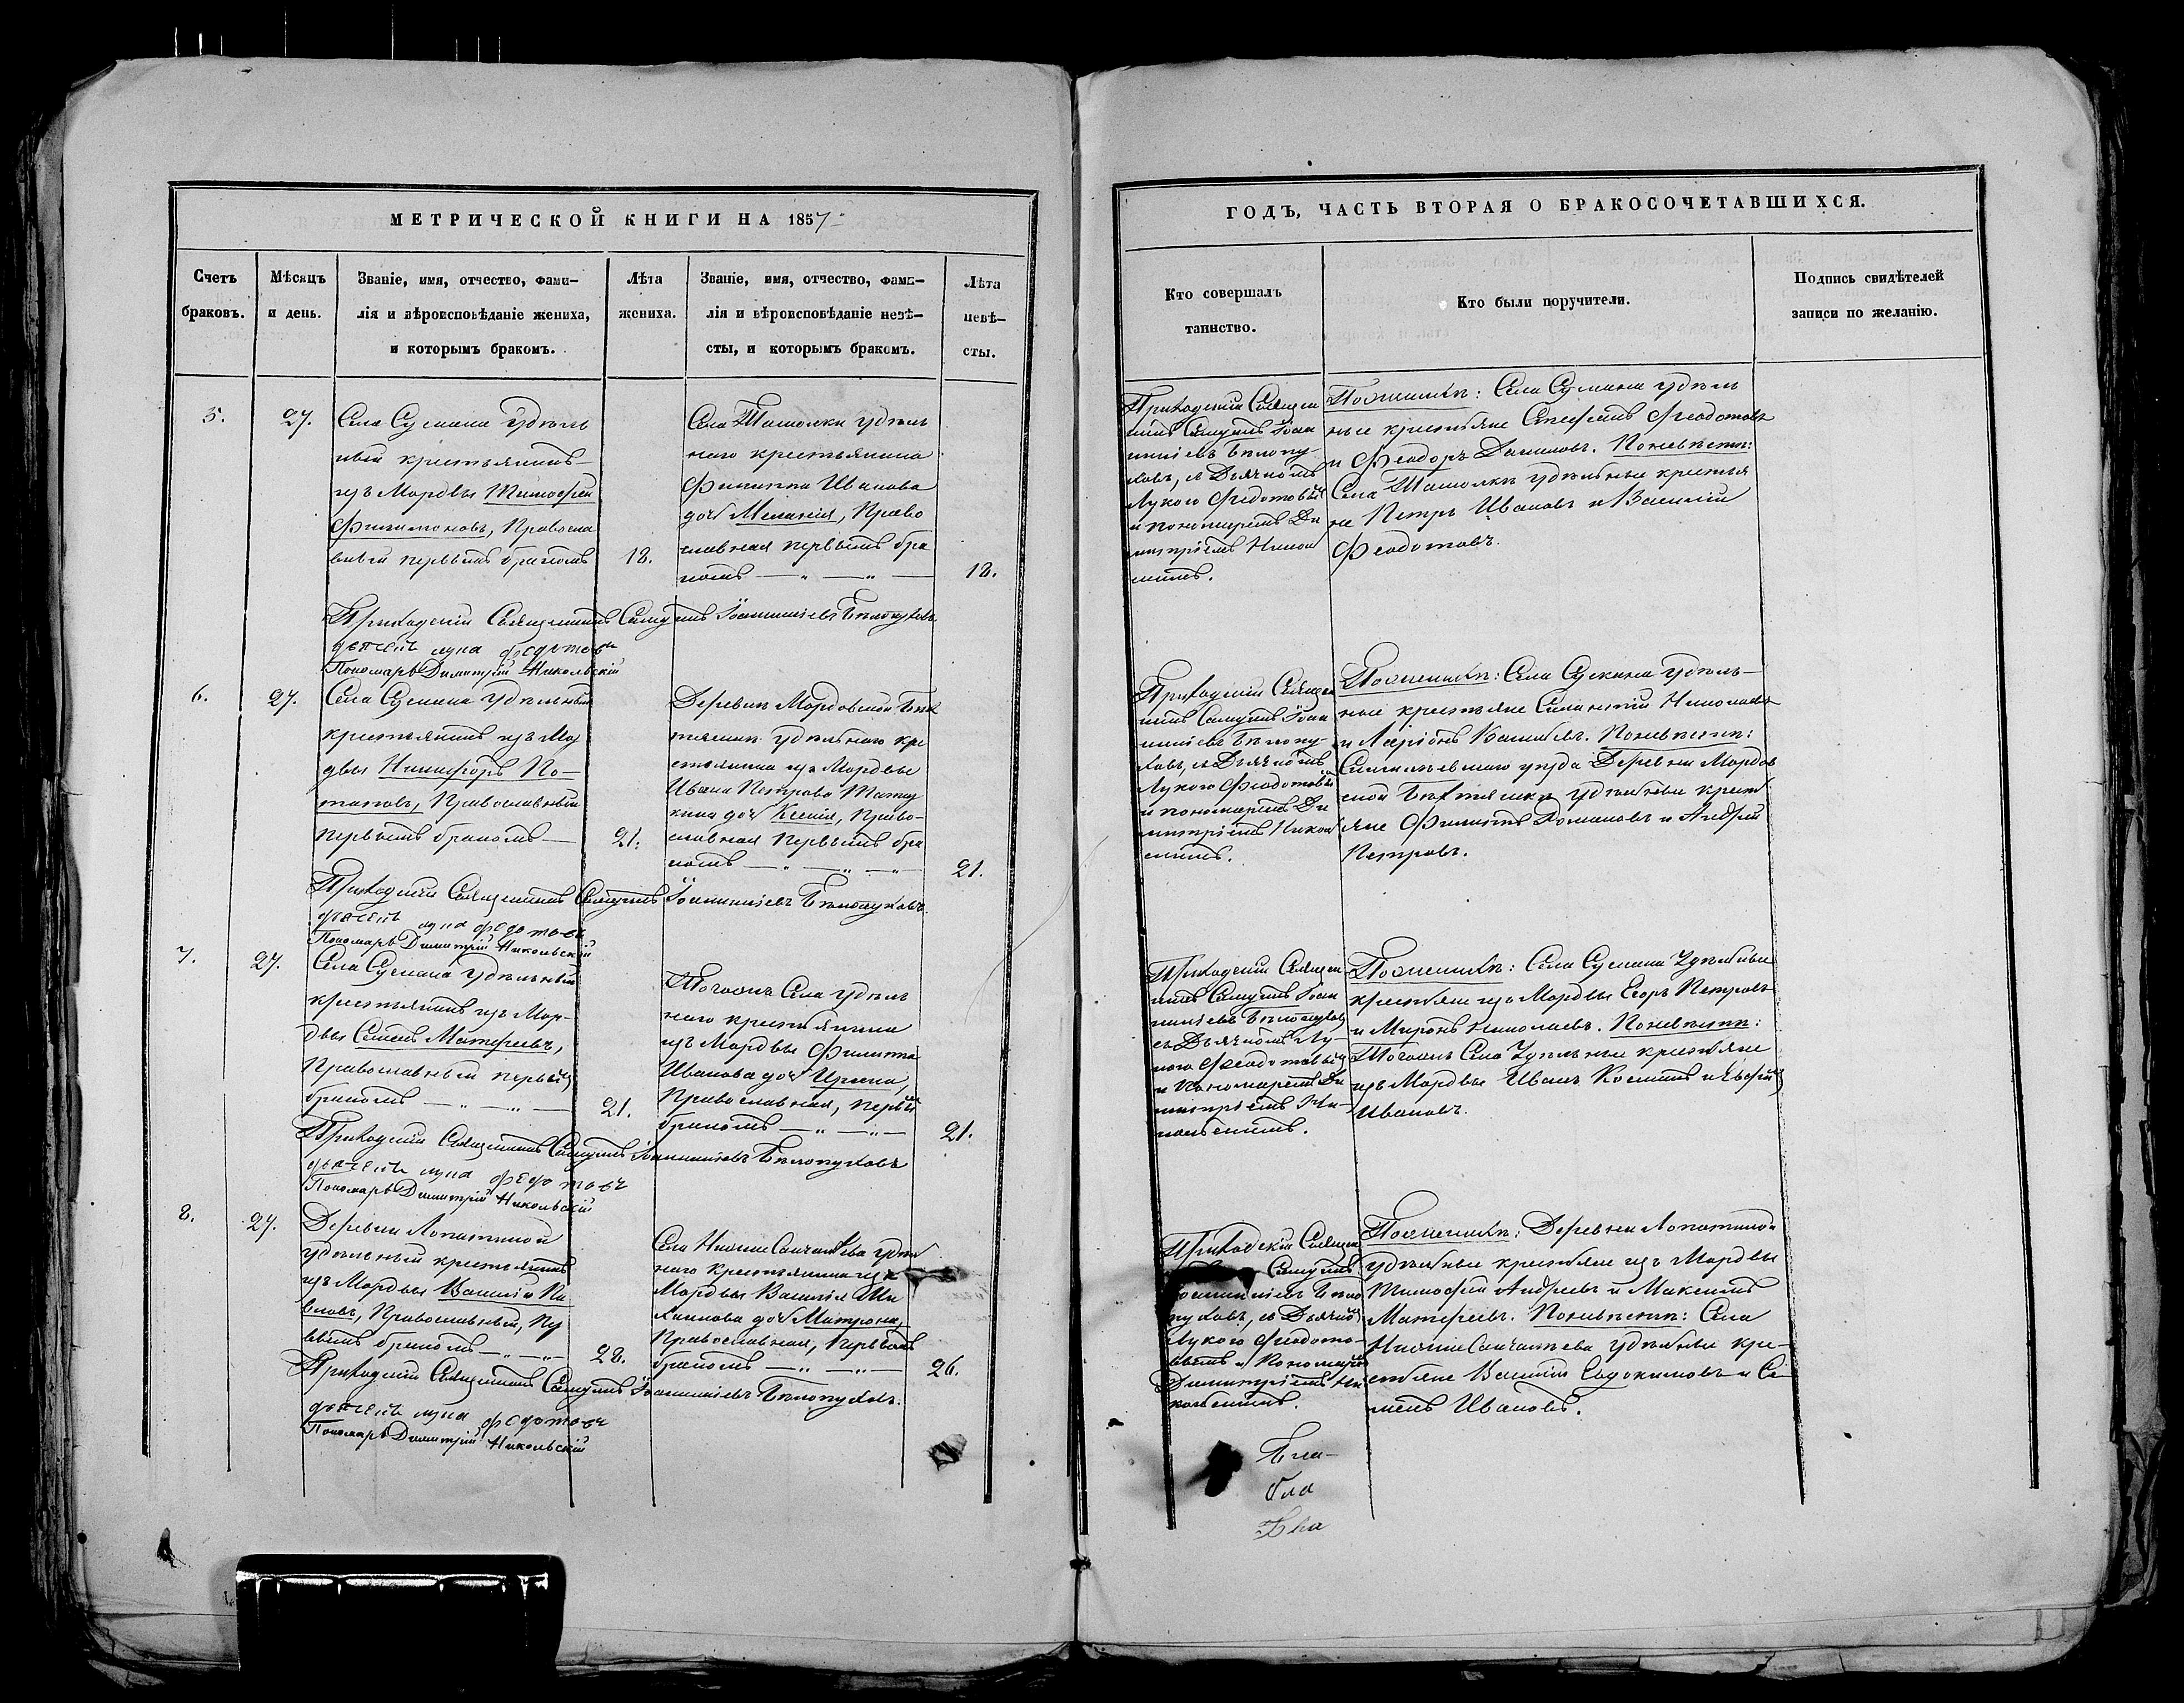 МЕТРИЧЕСКОЙ КНИГИ НА 1857
Счетъ браковъ.
Мѣсяцъ и день.
Званіе, имя, отчество, фами-
лія и вѣроисповѣданіе жениха,
и которымъ бракомъ.
Лѣта
жениха.
Званіе, имя, отчество, фами-
лія и вѣроисповѣданіе невѣ-
сты, и которымъ бракомъ.
Лѣта
невѣ-
сты.
5.
27.
Села Сускана удѣль
ный крестьянинъ
изъ Мордвы Тимофей
Филимоновъ, Правосла
вный первымъ бракомъ
18.
Села Ташолки удѣль
наго крестьянина
Филиппа Иванова
дочь Меланія, Право
славная первымъ бра
комъ — „ — „ —
18.
Приходскій Священникъ Самуилъ Іоанникіевъ Бѣлопуховъ.
дьячекъ лука федотовъ
Пономарь Димитрій Никольскій
6.
27.
Села Сускана удѣльный
крестьянинъ изъ Мор
двы Никифоръ По-
таповъ, Православный
первымъ бракомъ —
21.
Деревни Мордовской
удѣльнаго кре
стьянина изъ Мордвы
Ивана Петрова
дочь Ксенія, Право-
славная первымъ бра
комъ — „ — „ — „ —
21.
Приходскій Священникъ Самуилъ Іоанникіевъ Бѣлопуховъ.
дьячекъ лука федотовъ
Пономарь Димитрій Никольскій
7.
27.
Села Сускана удѣльный
крестьянинъ изъ Мор-
двы Семенъ Матфеевъ,
Православный первымъ
бракомъ — „ — „ —
21.
Тогожъ Села удѣль
наго крестьянина
изъ Мордвы Филиппа
Иванова дочь Ирина,
Православная, первымъ
бракомъ — „ — „ —
21.
Приходскій Священникъ Самуилъ Іоанникіевъ Бѣлопуховъ
дьячекъ лука федотовъ
Пономарь Димитрій Никольскій
8.
27.
Деревни Лопатиной
удѣльный крестьянинъ
изъ Мордвы Василій Па
вловъ, Православный, пер
вымъ бракомъ — „ — „ —
28.
Села Нижне Санчалѣева удѣль
наго крестьянина изъ
Мордвы Василія Ми
хаилова дочь Матрона,
Православная, первымъ
бракомъ — „ — „ —
26.
Приходскій Священникъ Самуилъ Іоанникіевъ Бѣлопуховъ.
дьячекъ лука федотовъ
Пономарь Димитрій Никольскій
ГОДЪ, ЧАСТЬ ВТОРАЯ О БРАКОСОЧЕТАВШИХСЯ.
Кто совершалъ
таинство.
Кто были поручители.
Подпись свидѣтелей
записи по желанію.
Приходскій Священ
никъ Самуилъ Іоан
никіевъ Бѣлопу-
ховъ, съ Дьячкомъ
Лукою Феодотовымъ
и пономаремъ Ди
митріемъ Николь
скимъ.
По женихѣ: Села Сускана удѣль
ные крестьяне Стефанъ Феодотовъ
и Феодоръ Даниловъ. По невѣстѣ:
Села Ташолки удѣльные крестья
не Петръ Ивановъ и Василій
Феодотовъ.
Приходскій Священ
никъ Самуилъ Іоан
никіевъ Бѣлопу-
ховъ, съ Дьячкомъ
Лукою Феодотовымъ
и пономаремъ Ди
митріемъ Николь
скимъ.
По женихѣ: Села Сускана удѣль-
ные крестьяне Николаевъ
и Ларіонъ Васильевъ. По невѣстѣ:
уѣзда Деревни Мордов
ской удѣльные кресть
яне Филиппъ Романовъ и Андрей
Петровъ.
Приходскій Священ
никъ Самуилъ Іоан
никіевъ Бѣлопуховъ
съ Дьячкомъ Лу-
кою Феодотовымъ
и Пономаремъ Ди
митріемъ Ни-
кольскимъ.
По женихѣ: Села Сускана Удѣльные
крестьяне изъ Мордвы Егоръ Петровъ
и Миронъ Николаевъ. По невѣстѣ:
Тогожъ Села Удѣльные крестьяне
изъ Мордвы Иванъ Косминъ и
Ивановъ.
Приходскій Священ
Самуилъ
Іоанникіевъ Бѣло
пуховъ, съ Дьячкомъ
Лукою Феодото-
вымъ и Пономаремъ
Димитріемъ Ни
кольскимъ.
По женихѣ: Деревни Лопатиной
удѣльные крестьяне изъ Мордвы
Тимофей Андреевъ и Максимъ
Матфеевъ. По невѣстѣ: Села
Нижне Санчалѣева удѣльные кре-
стьяне Василій Евдокимовъ и Се
менъ Ивановъ.